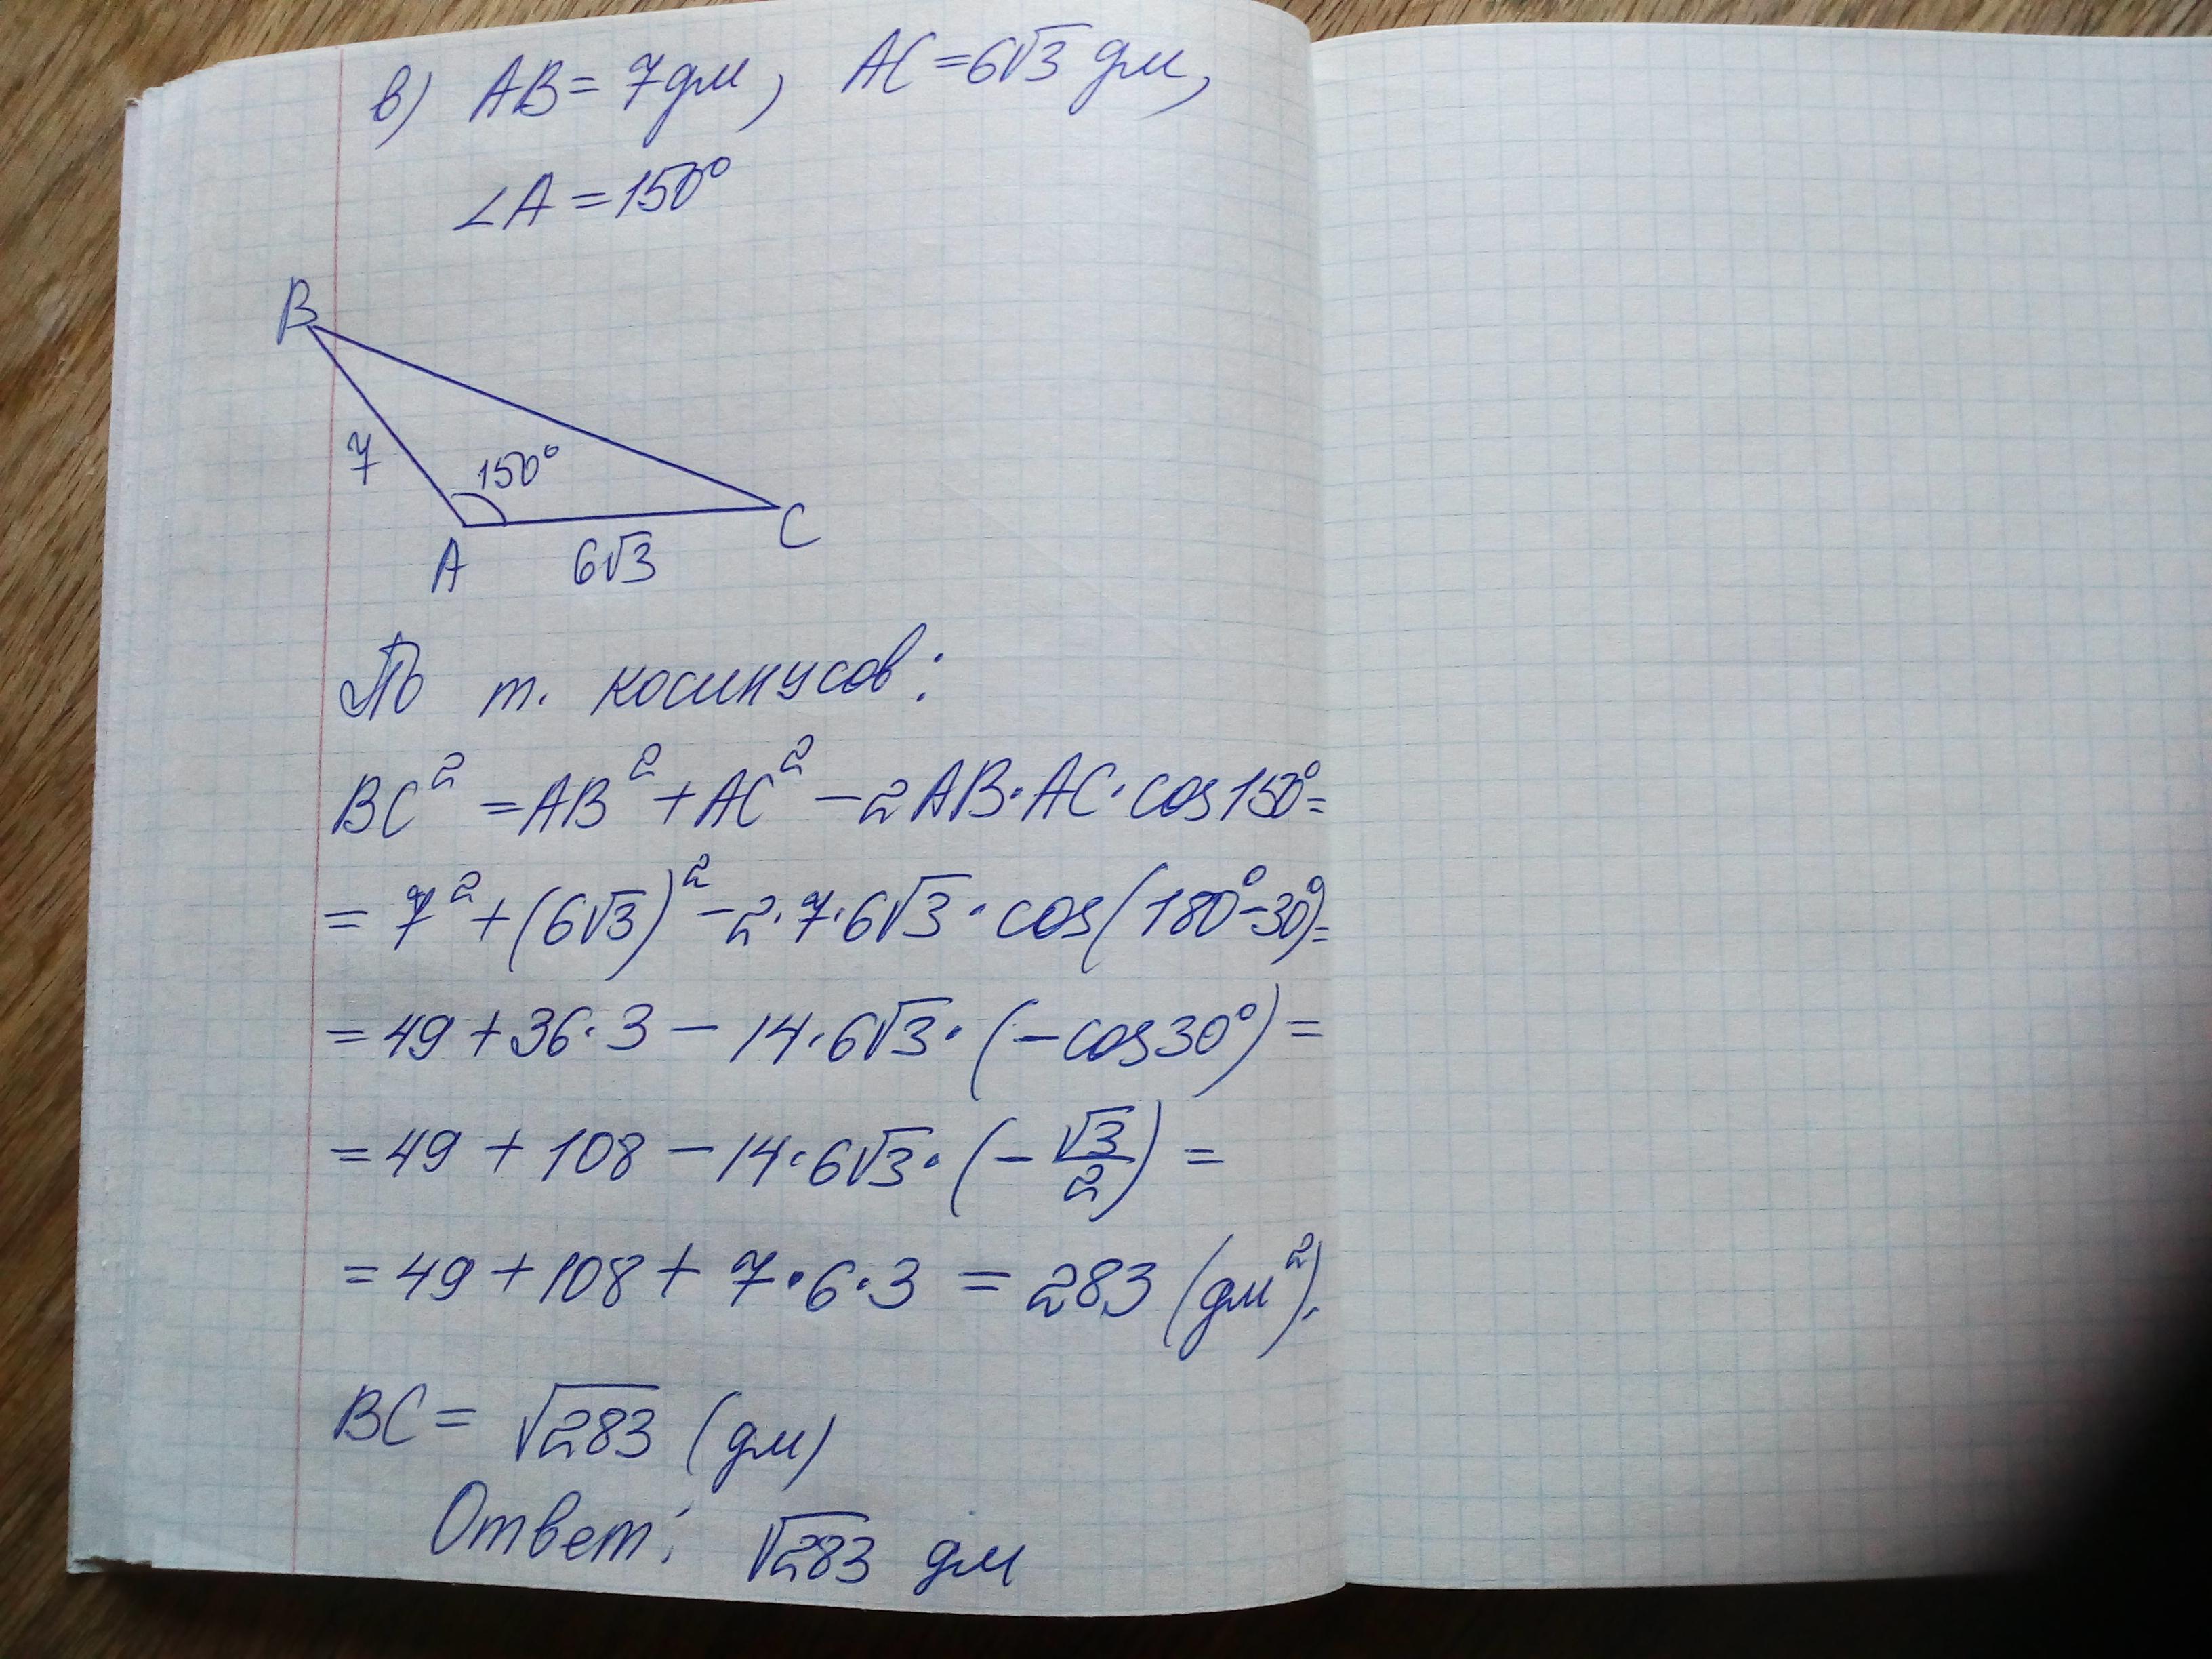 в) AB = 7 дм, AC = 6√3 дм,
∠A = 150°
B
7
150°
A
6√3
C
По т. косинусов:
BC² = AB² + AC² - 2AB·AC·cos150° =
= 7² + (6√3)² - 2·7·6√3·cos(180° - 30°) =
= 49 + 36·3 - 14·6√3·(-cos30°) =
= 49 + 108 - 14·6√3·(-√3/2) =
= 49 + 108 + 7·6·3 = 283 (дм²).
BC = √283 (дм)
Ответ: √283 дм